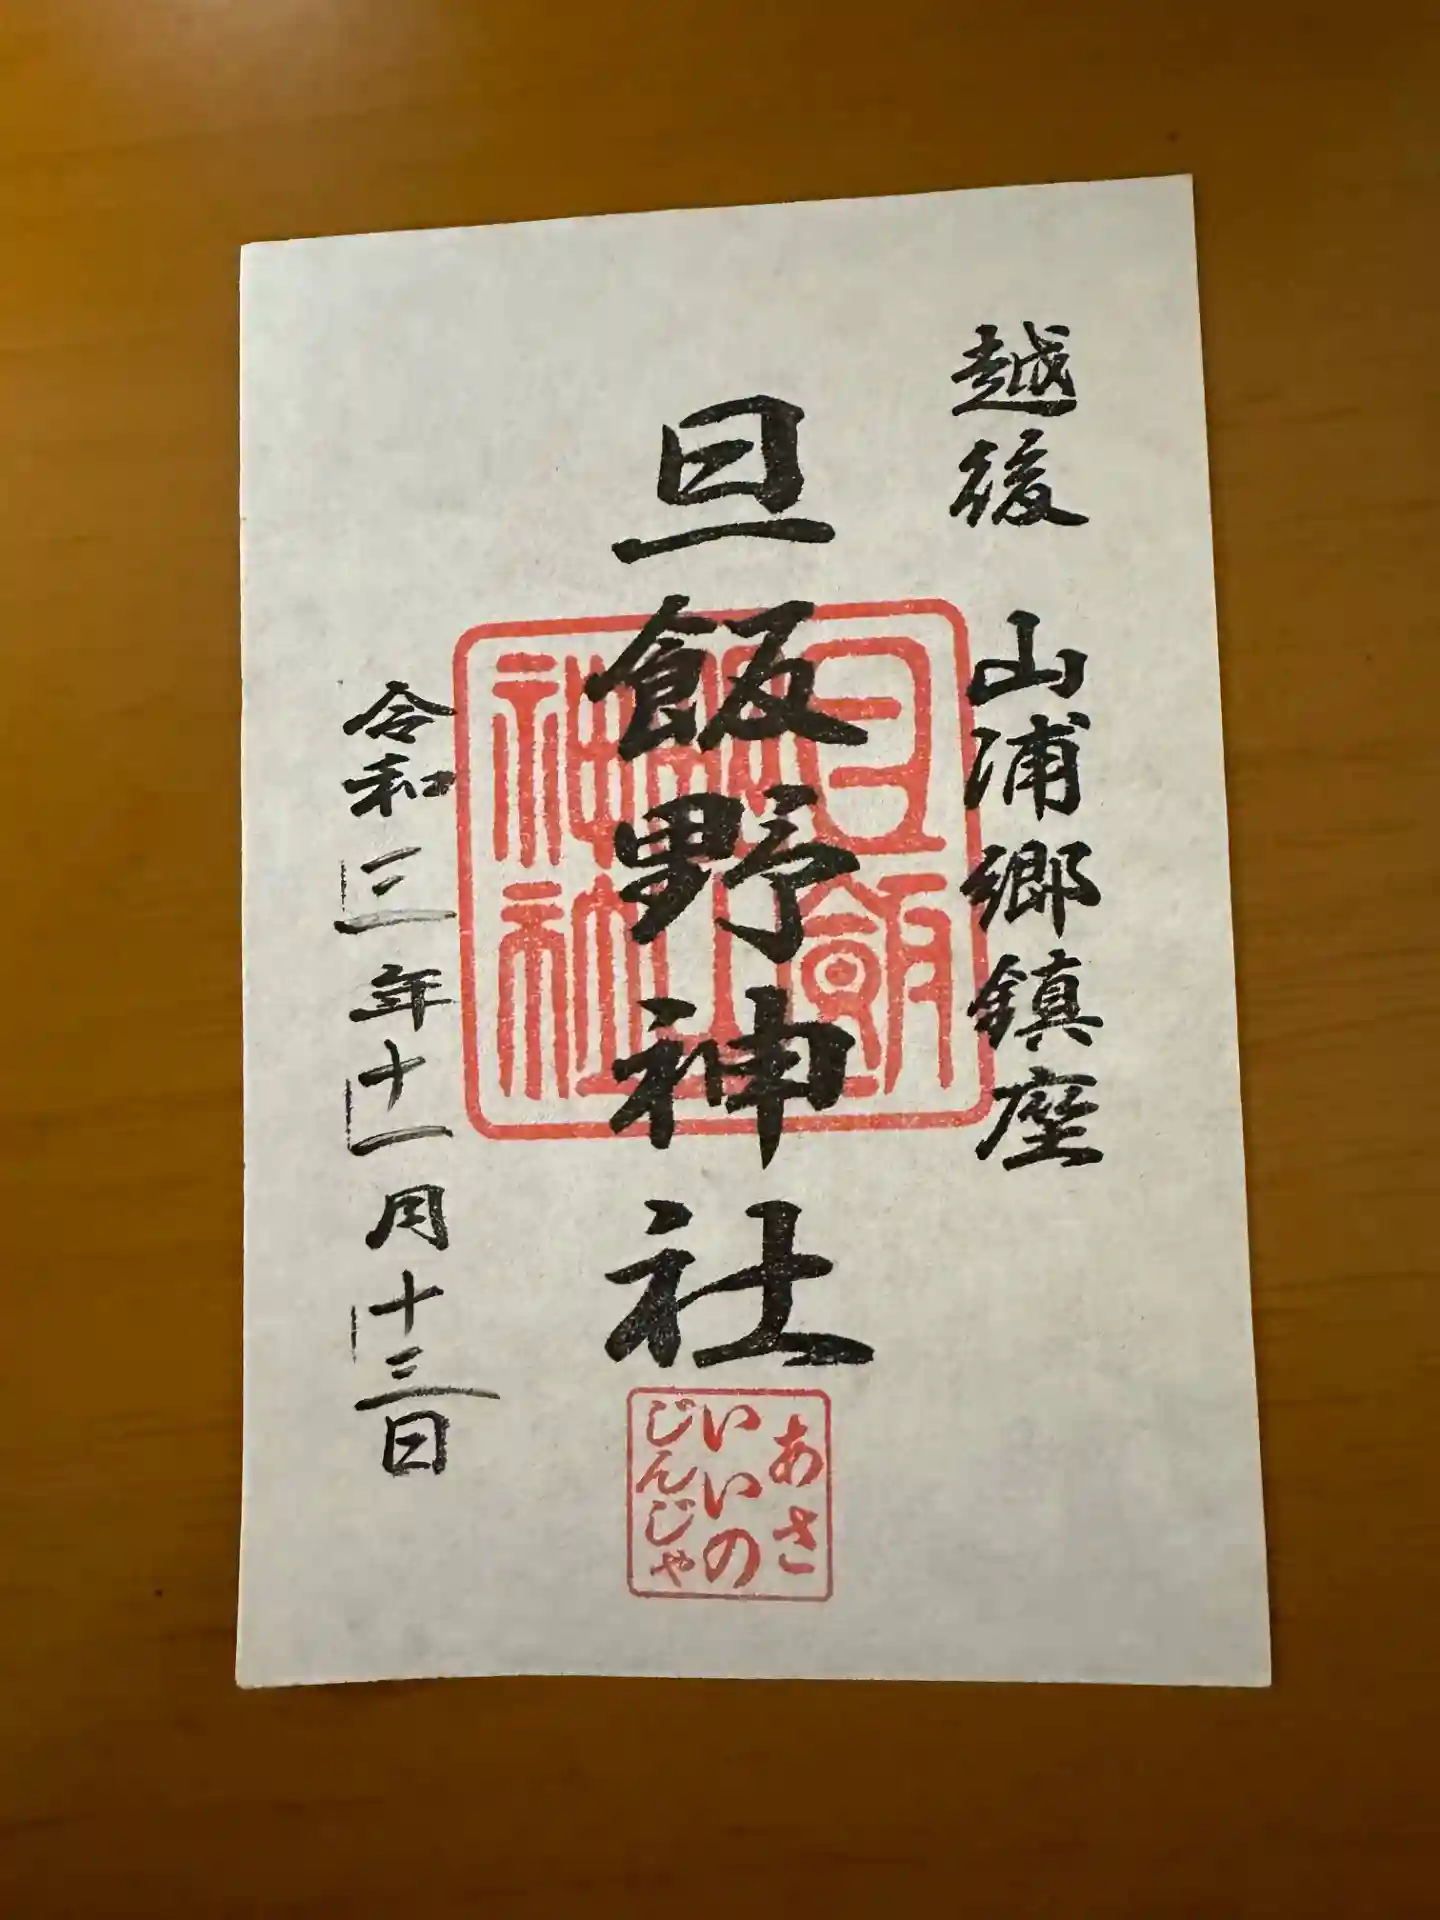 越後 山浦郷鎮座
旦飯野神社
旦飯野神社
あさ
いいの
じんじゃ
令和三年十一月十三日